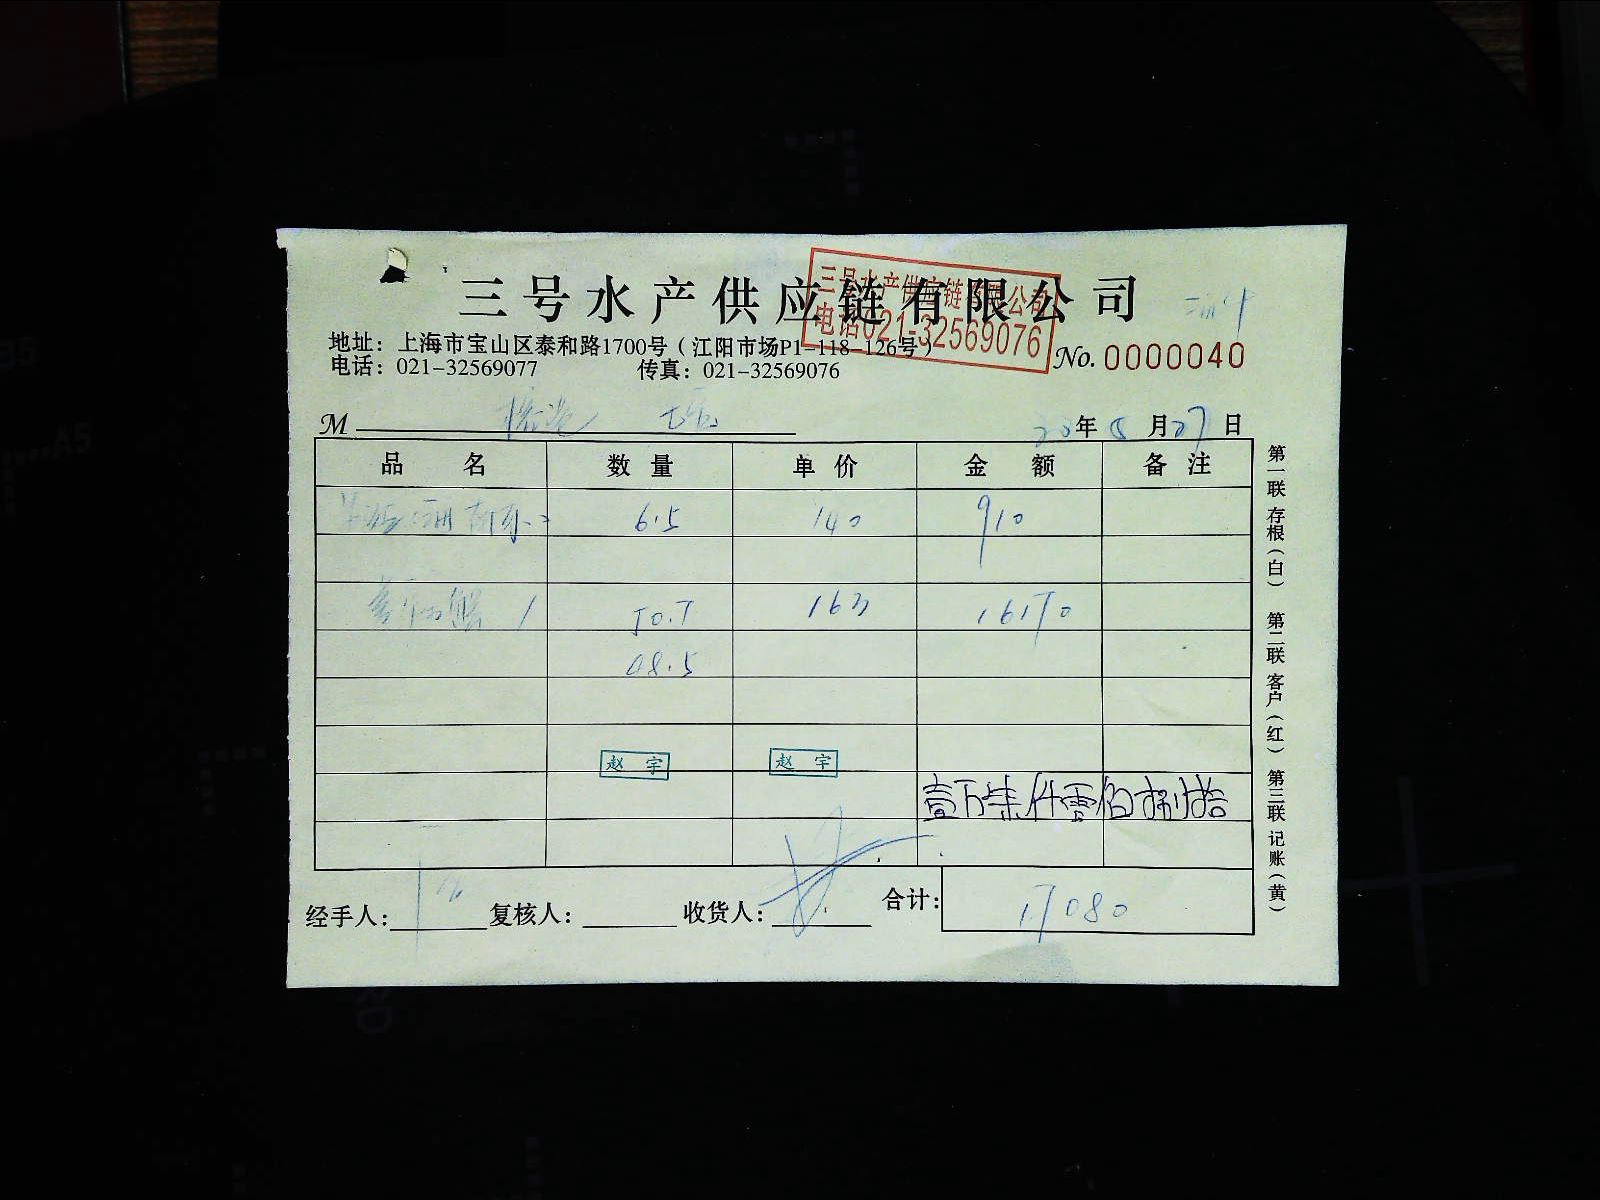 三号水产供应链有限公司
三号水产供应链有限公司
电话021-32569076
地址：上海市宝山区泰和路1700号（江阳市场P1-118-126号）
电话：021-32569077 传真：021-32569076
No. 0000040
M
20年8月27日
品名 数量 单价 金额 备注
6.5 140 910
50.5 163 16170
08.5
赵宇 赵宇
壹万柒仟零佰捌拾
经手人： 复核人： 收货人： 合计： 17080
第一联 存根（白） 第二联 客户（红） 第三联 记账（黄）